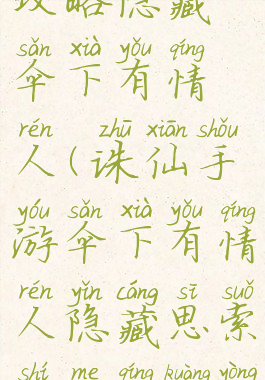 攻略隐藏
sǎn xià yǒu qíng
伞下有情
rén zhū xiān shǒu
人(诛仙手
yóu sǎn xià yǒu qíng
游伞下有情
rén yǐn cáng sī suǒ
人隐藏思索
shí me qíng kuàng yòng